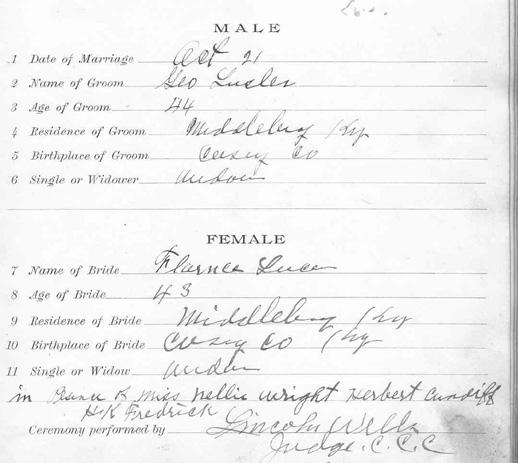 MALE
1 Date of Marriage Oct 21
2 Name of Groom Geo
3 Age of Groom 44
4 Residence of Groom Middleburg Ky
5 Birthplace of Groom Casey Co
6 Single or Widower
FEMALE
7 Name of Bride
8 Age of Bride 43
9 Residence of Bride Middleburg Ky
10 Birthplace of Bride Casey Co Ky
11 Single or Widow
in of Miss Nellie Wright Herbert Cundiff
H.K Fredrick
Ceremony performed by Lincoln Wells
Judge. C.C.C